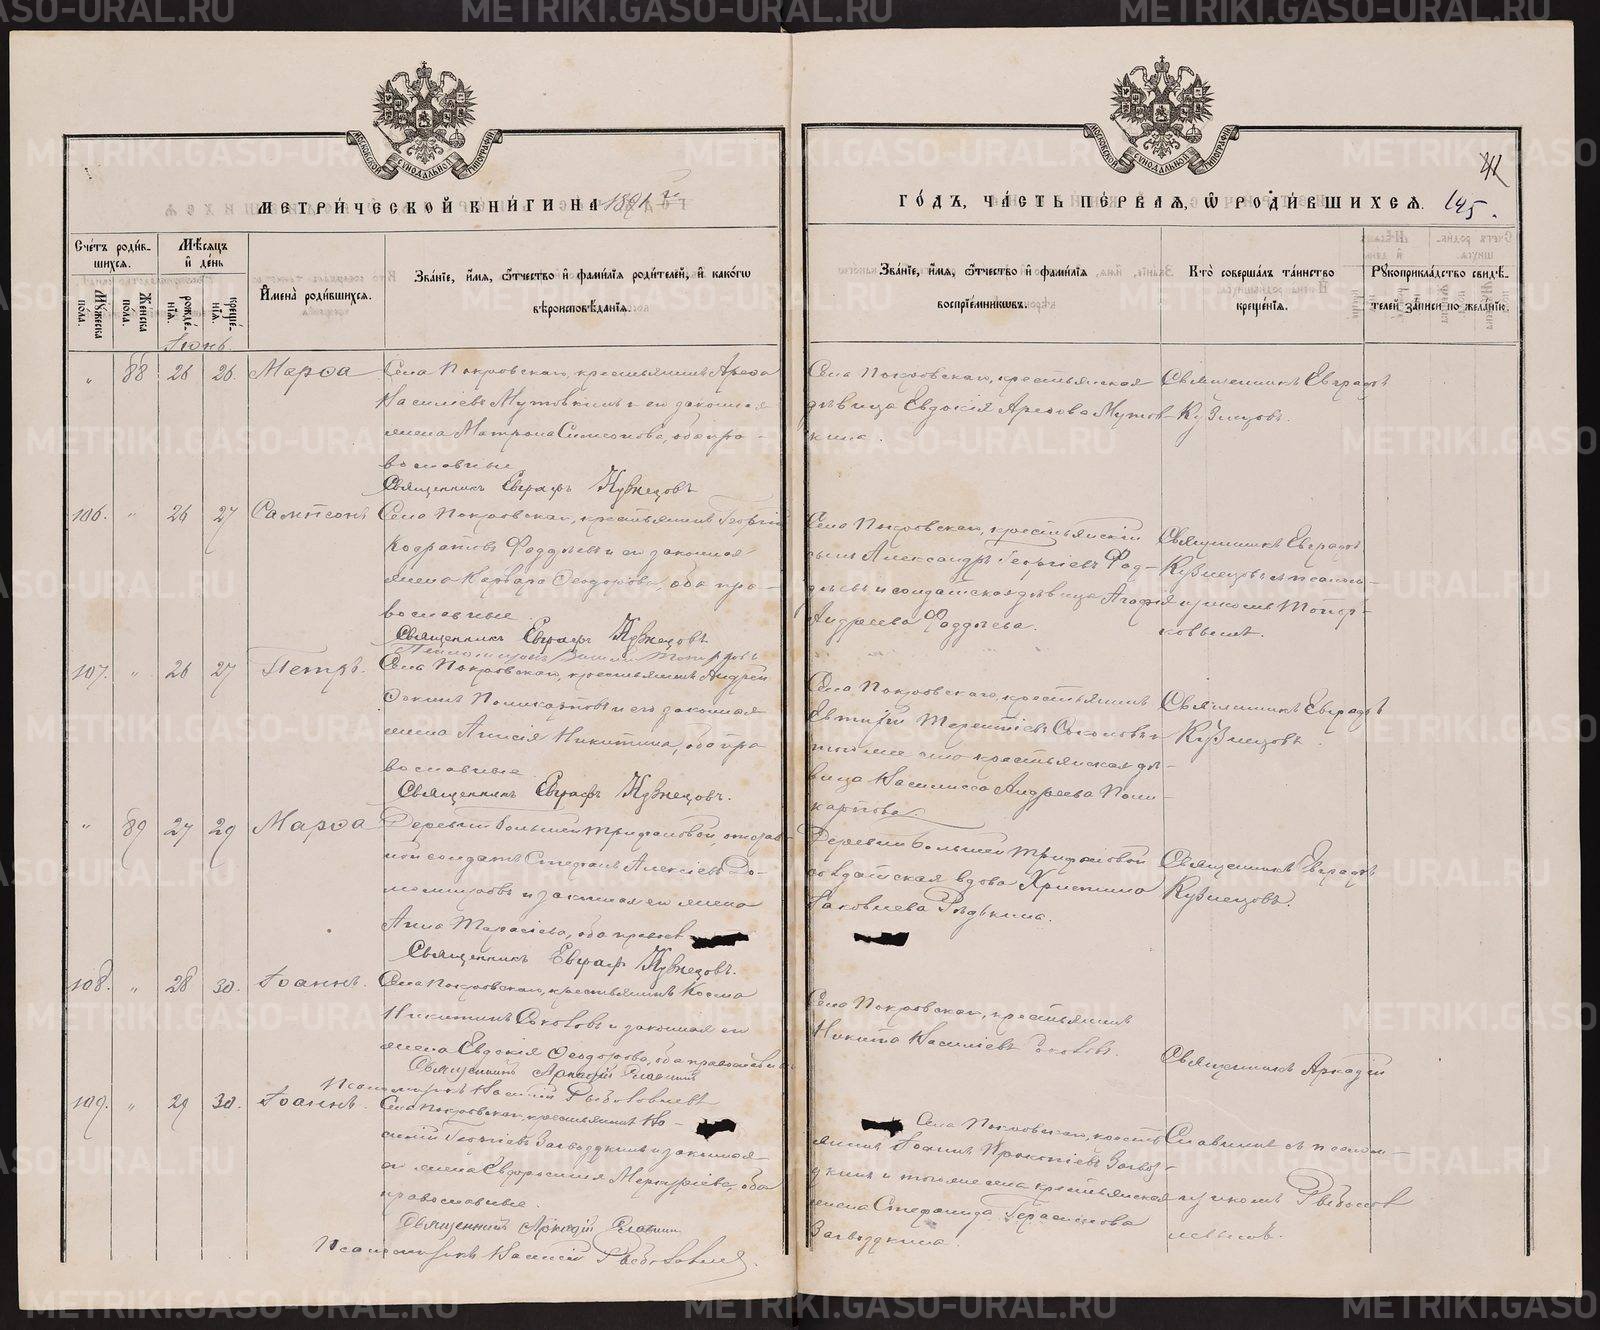 МЕТРИ́ЧЕСКОЙ КНИ́ГИ НА 1891 й
ГО́ДЪ, ЧА́СТЬ ПЕ́РВАѦ, Ѡ҆ РОДИ́ВШИХСѦ. 145.
Сче́тъ роди́в-
шихсѧ.
Мꙋ́жеска по́ла.
Же́нска по́ла.
Мѣ́сѧцъ и҆ де́нь
рожде́-
нїѧ.
креще́-
нїѧ.
И҆мена̀ роди́вшихсѧ.
Зва́нїе, и҆́мѧ, ѻ҆́тчество и҆ фами́лїѧ роди́телей, и҆ како́гѡ
вѣроисповѣ́данїѧ.
Зва́нїе, и҆́мѧ, ѻ҆́тчество и҆ фами́лїѧ
воспрїе́мникѡвъ.
Кто̀ соверша́лъ та́инство
креще́нїѧ.
Рꙋкоприкла́дство свидѣ́-
телей за́писи по жела́нїю.
Іюнь
„ 88 26 26. Марѳа
Села Покровскаго, крестьянинъ Ареѳа
Василіевъ Мутовкинъ и его законная
жена Матрона Симеонова, оба пра-
вославные
Священникъ Евграфъ Кузнецовъ
Села Покровскаго, крестьянская
дѣвица Евдокія Ареѳова Мутов-
кина.
Священникъ Евграфъ
Кузнецовъ.
106. „ 26 27 Сампсонъ
Села Покровскаго, крестьянинъ Георгій
Кодратовъ Фаддѣевъ и его законная
жена Варвара Ѳеодорова, оба пра-
вославные
Священникъ Евграфъ Кузнецовъ
Села Покровскаго, крестьянскій
сынъ Александръ Георгіевъ Фад-
дѣевъ и солдатская дѣвица Агафія
Андреева Фаддѣева.
Священникъ Евграфъ
Кузнецовъ съ псалом-
щикомъ Топор-
ковымъ.
107. „ 26 27 Петръ.
Села Покровскаго, крестьянинъ Андрей
Поликарповъ и его законная
жена Анисія Никитина, оба пра
вославные
Священникъ Евграфъ Кузнецовъ.
Села Покровскаго, крестьянинъ
Евтихій Терентіевъ Соколовъ и
крестьянская дѣ-
вица Василисса Андреева Поли-
карпова.
Священникъ Евграфъ
Кузнецовъ
„ 89 27 29 Марѳа
Деревни Большей Трифановой, отстав-
ной солдатъ Стефанъ Алексіевъ До-
и законная его жена
Анна Тарасіева, оба правосл
Священникъ Евграфъ Кузнецовъ.
Деревни Большей Трифановой
солдатская вдова Христина
Іаковлева Рѣдькина.
Священникъ Евграфъ
Кузнецовъ.
108. „ 28 30. Іоаннъ.
Села Покровскаго, крестьянинъ Косма
Никитинъ Соколовъ и законная его
жена Евдокія Ѳеодорова, оба православные
Священникъ Аркадій Славнинъ
Псаломщикъ Василій Рыболовлевъ
Села Покровскаго, крестьянинъ
Никита Василіевъ Соколовъ.
Священникъ Аркадій
109. „ 29 30. Іоаннъ.
Села Покровскаго, крестьянинъ Ва-
силій Георгіевъ Загвоздкинъ и законная
его жена Евфросинія Меркуріева, оба
православные.
Священникъ Аркадій Славнинъ
Псаломщикъ Василій Рыболовлевъ.
Села Покровскаго, кресть
янинъ Іоаннъ Прокопіевъ Загвоз-
дкинъ и крестьянская
жена Стефанида Герасимова
Загвоздкина.
Славнинъ съ псалом-
щикомъ Рыболов
левымъ.